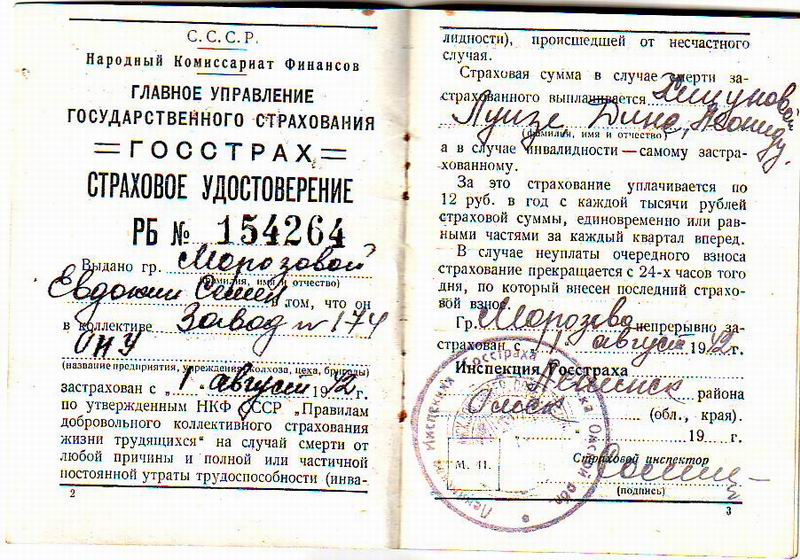 С.С.С.Р.
Народный Комиссариат Финансов
ГЛАВНОЕ УПРАВЛЕНИЕ
ГОСУДАРСТВЕННОГО СТРАХОВАНИЯ
=ГОССТРАХ=
СТРАХОВОЕ УДОСТОВЕРЕНИЕ
РБ № 154264
Выдано гр. Морозовой
(фамилия, имя и отчество)
Евдокии том, что он
в коллективе Завод № 174
(название предприятия, учреждения, колхоза, цеха, бригады)
застрахован с „1. август 1942г.
по утвержденным НКФ СССР „Правилам
добровольного коллективного страхования
жизни трудящихся“ на случай смерти от
любой причины и полной или частичной
постоянной утраты трудоспособности (инва-
2
лидности), происшедшей от несчастного
случая.
Страховая сумма в случае смерти за-
страхованного выплачивается
(фамилия, имя и отчество)
а в случае инвалидности — самому застра-
хованному.
За это страхование уплачивается по
12 руб. в год с каждой тысячи рублей
страховой суммы, единовременно или рав-
ными частями за каждый квартал вперед.
В случае неуплаты очередного взноса
страхование прекращается с 24-х часов того
дня, по который внесен последний страхо-
вой взнос.
Гр. Морозова непрерывно за-
страхован с август 1942г.
Инспекция Госстраха
района
Омск (обл., края).
19 г.
М. П.
Страховой инспектор
(подпись)
3